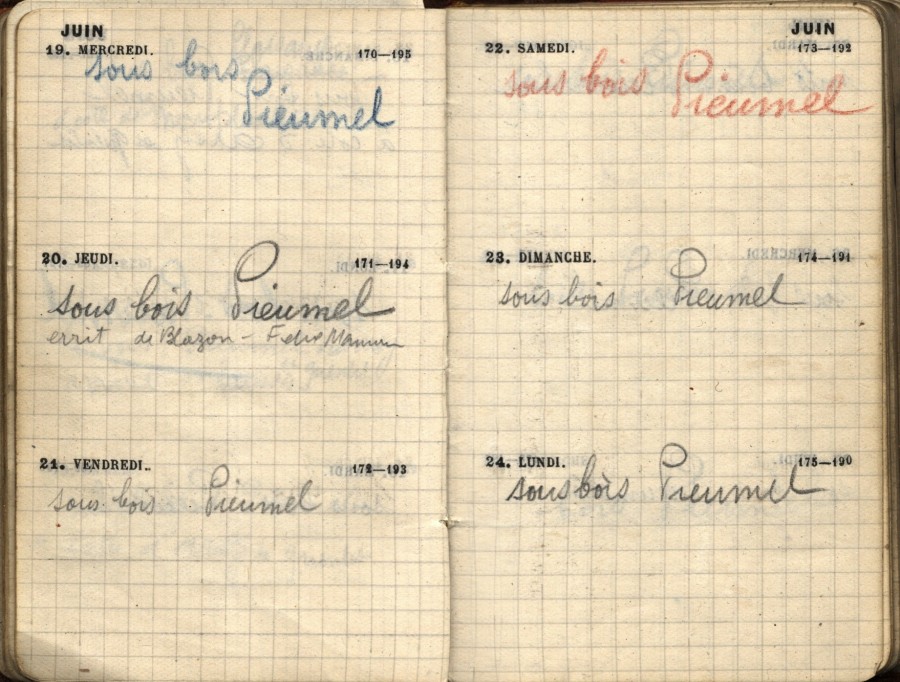 JUIN
19. MERCREDI. 170—195
sous bois
Pieumel
20. JEUDI. 171—194
sous bois Pieumel
errit de Blazon —
21. VENDREDI. 172—193
sous bois Pieumel
JUIN
22. SAMEDI. 173—192
sous bois Pieumel
23. DIMANCHE. 174—191
sous bois Pieumel
24. LUNDI. 175—190
sous bois Pieumel